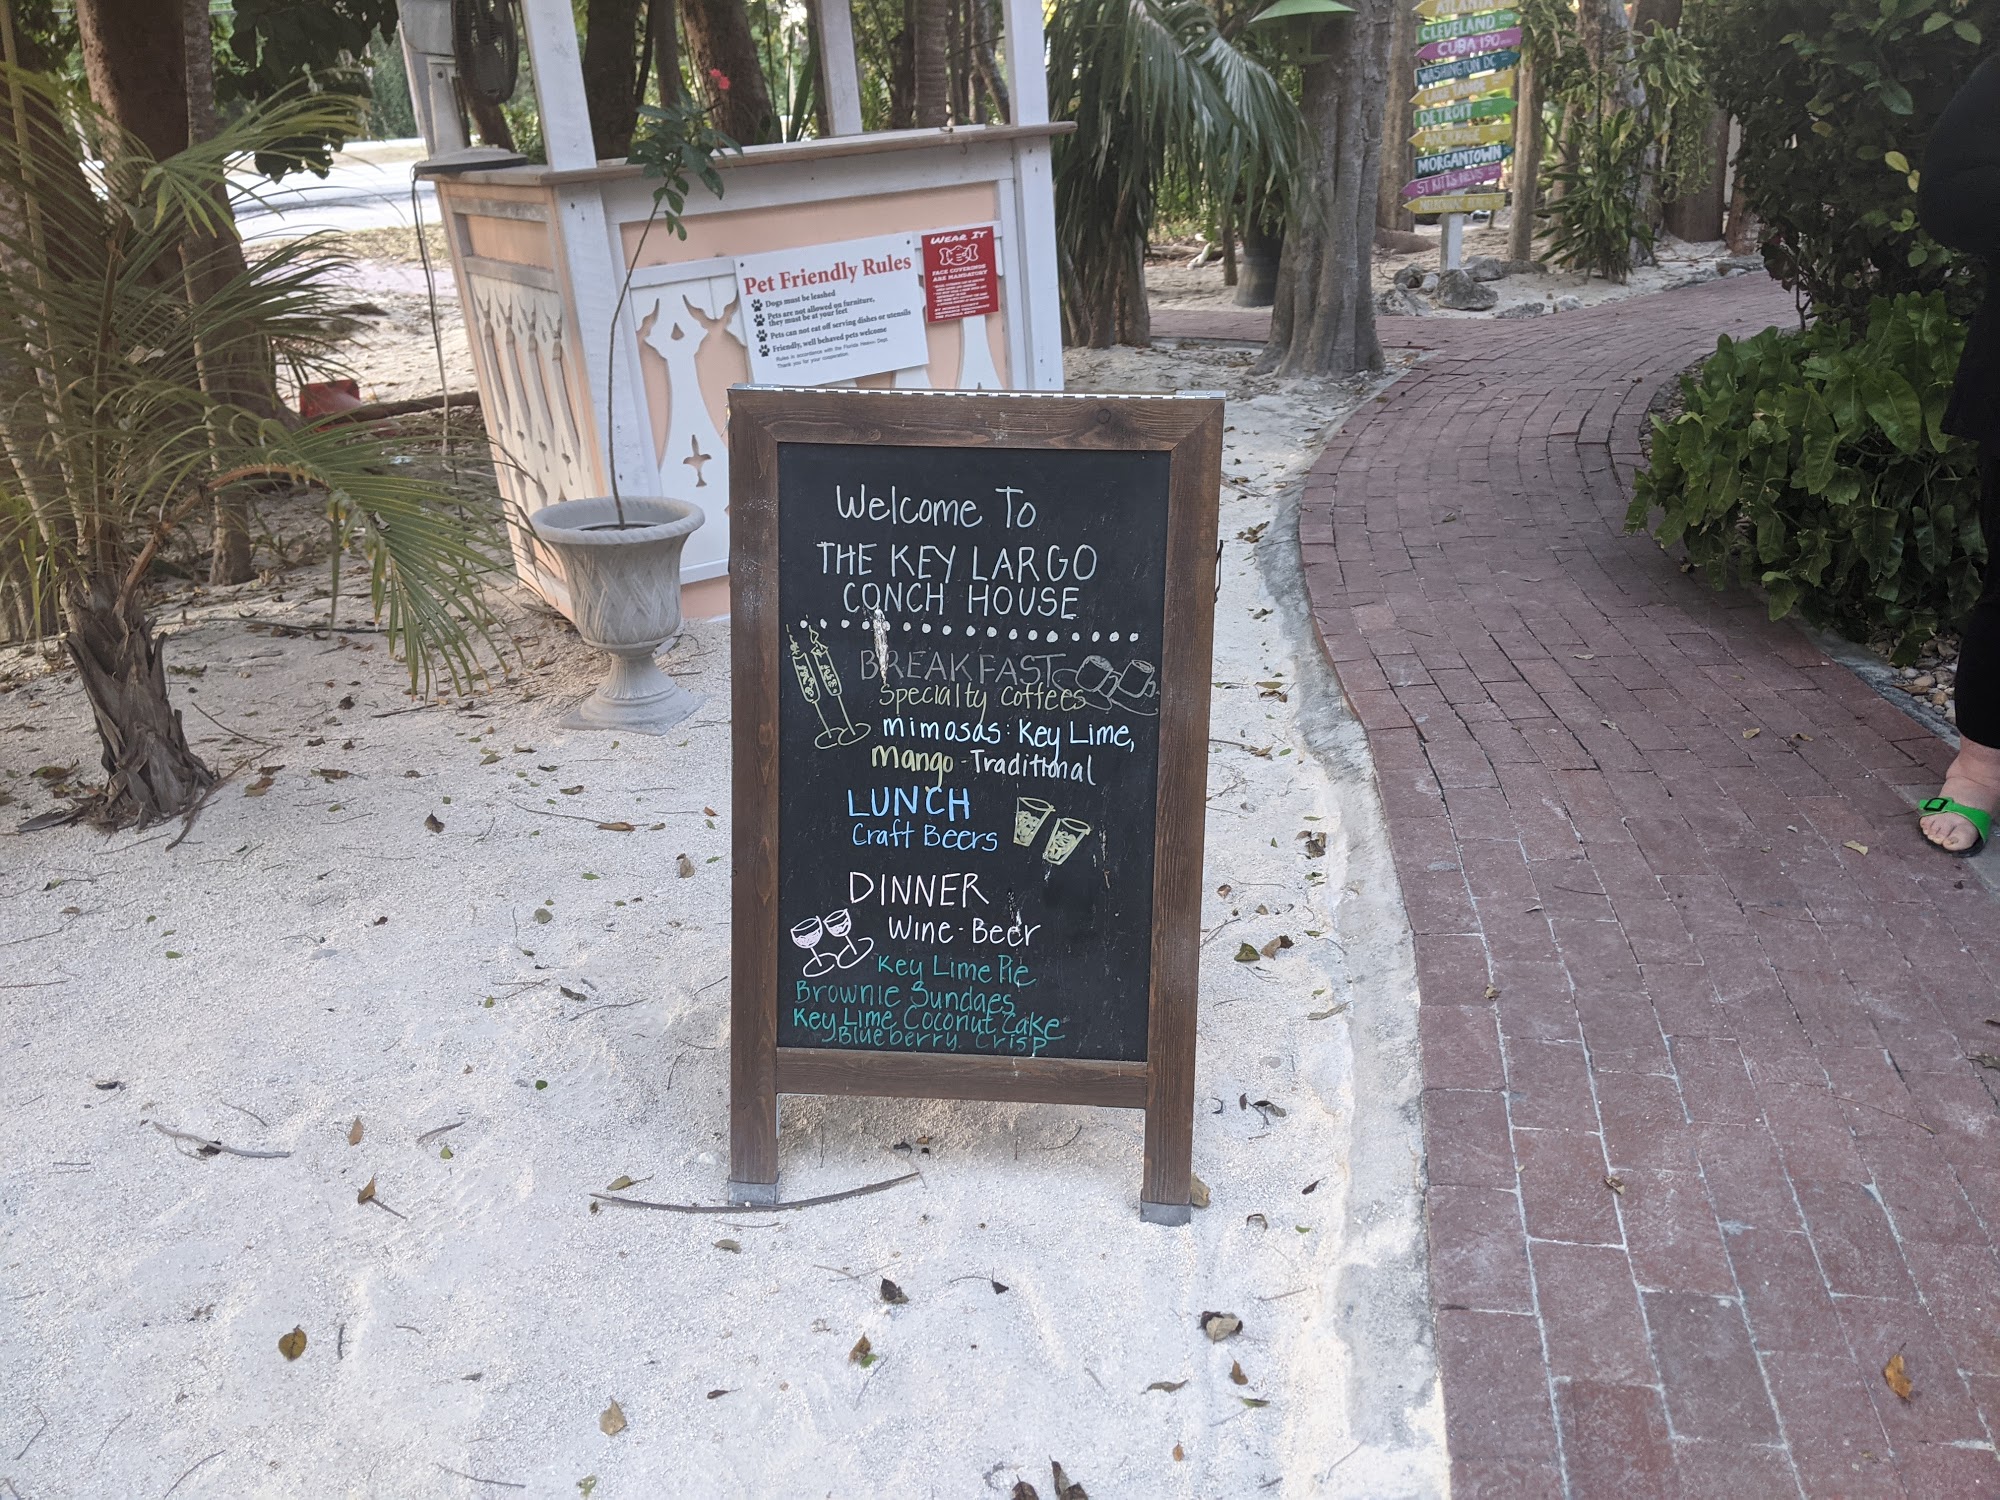 ATLANTA
CLEVELAND
CUBA 190
WASHINGTON DC
DETROIT
MORGANTOWN
ST KITTS NEVIS
Pet Friendly Rules
Dogs must be leashed
Pets are not allowed on furniture,
they must be at your feet
Pets can not eat off serving dishes or utensils
Friendly, well behaved pets welcome
Rules in accordance with the Florida Health Dept.
Thank you for your cooperation.
WEAR IT
FACE COVERINGS
ARE MANDATORY
Welcome To
THE KEY LARGO
CONCH HOUSE
BREAKFAST
Specialty Coffees
mimosas: Key Lime,
Mango - Traditional
LUNCH
Craft Beers
DINNER
Wine - Beer
Key Lime Pie
Brownie Sundaes
Key Lime Coconut Cake
Blueberry Crisp